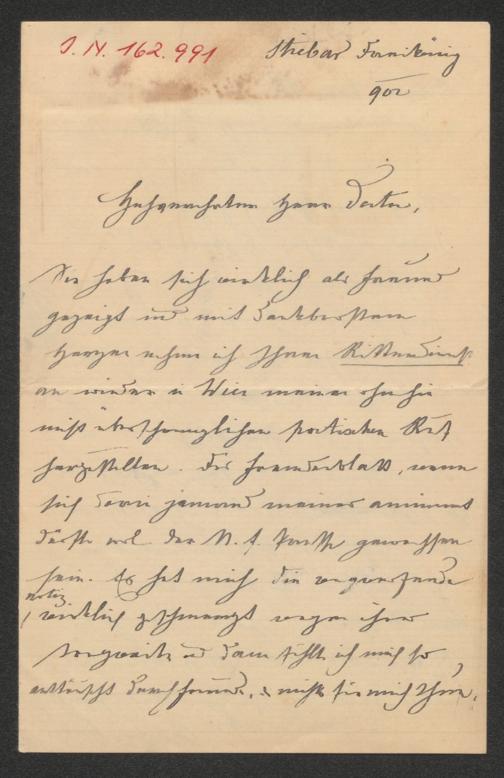 J. N. 162.991
Stiebar
902
Hochverehrter Herr Doctor,
Sie haben sich wirklich als Freund
gezeigt und mit dankbarstem
Herzen nehme ich Ihren Ritterdienst
an wieder in Wien meinen ohnehin
nicht überschwenglichen poetischen Ruf
herzustellen. Das Fremdenblatt, wenn
sich darin jemand meiner annimmt
dürfte wol der N. f. Presse gewachsen
sein. Es hat mich die wegwerfende
Notiz
wirklich geschmerzt wegen ihrer
Tragweite und dann fühlte ich mich so
enttäuscht